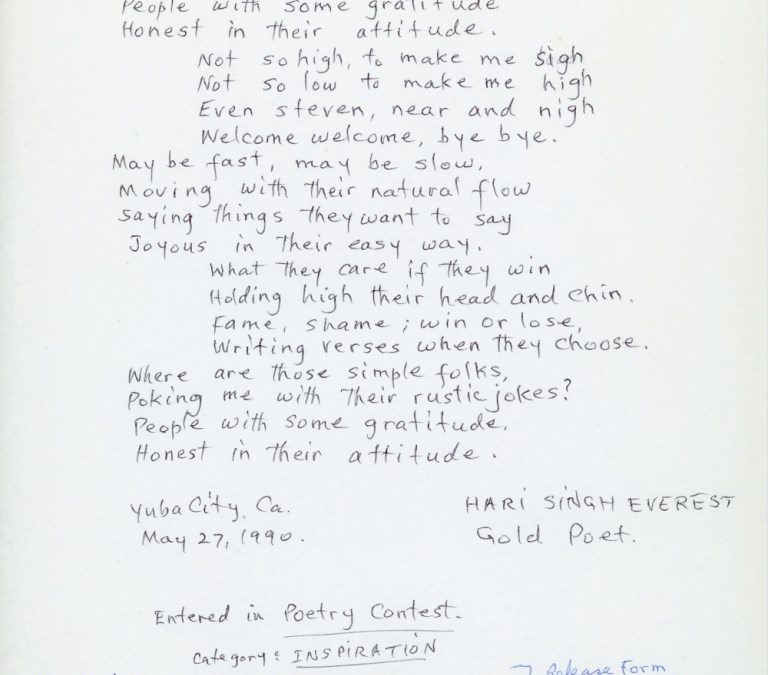 People with some gratitude
Honest in their attitude.
Not so high, to make me sigh
Not so low to make me high
Even steven, near and nigh
Welcome welcome, bye bye.
May be fast, may be slow,
Moving with their natural flow
saying things they want to say
Joyous in their easy way.
What they care if they win
Holding high their head and chin.
Fame, shame; win or lose,
Writing verses when they choose.
Where are those simple folks,
Poking me with their rustic jokes?
People with some gratitude,
Honest in their attitude.
Yuba City, Ca.
HARI SINGH EVEREST
May 27, 1990.
Gold Poet.
Entered in Poetry Contest.
Category: INSPIRATION
Release Form